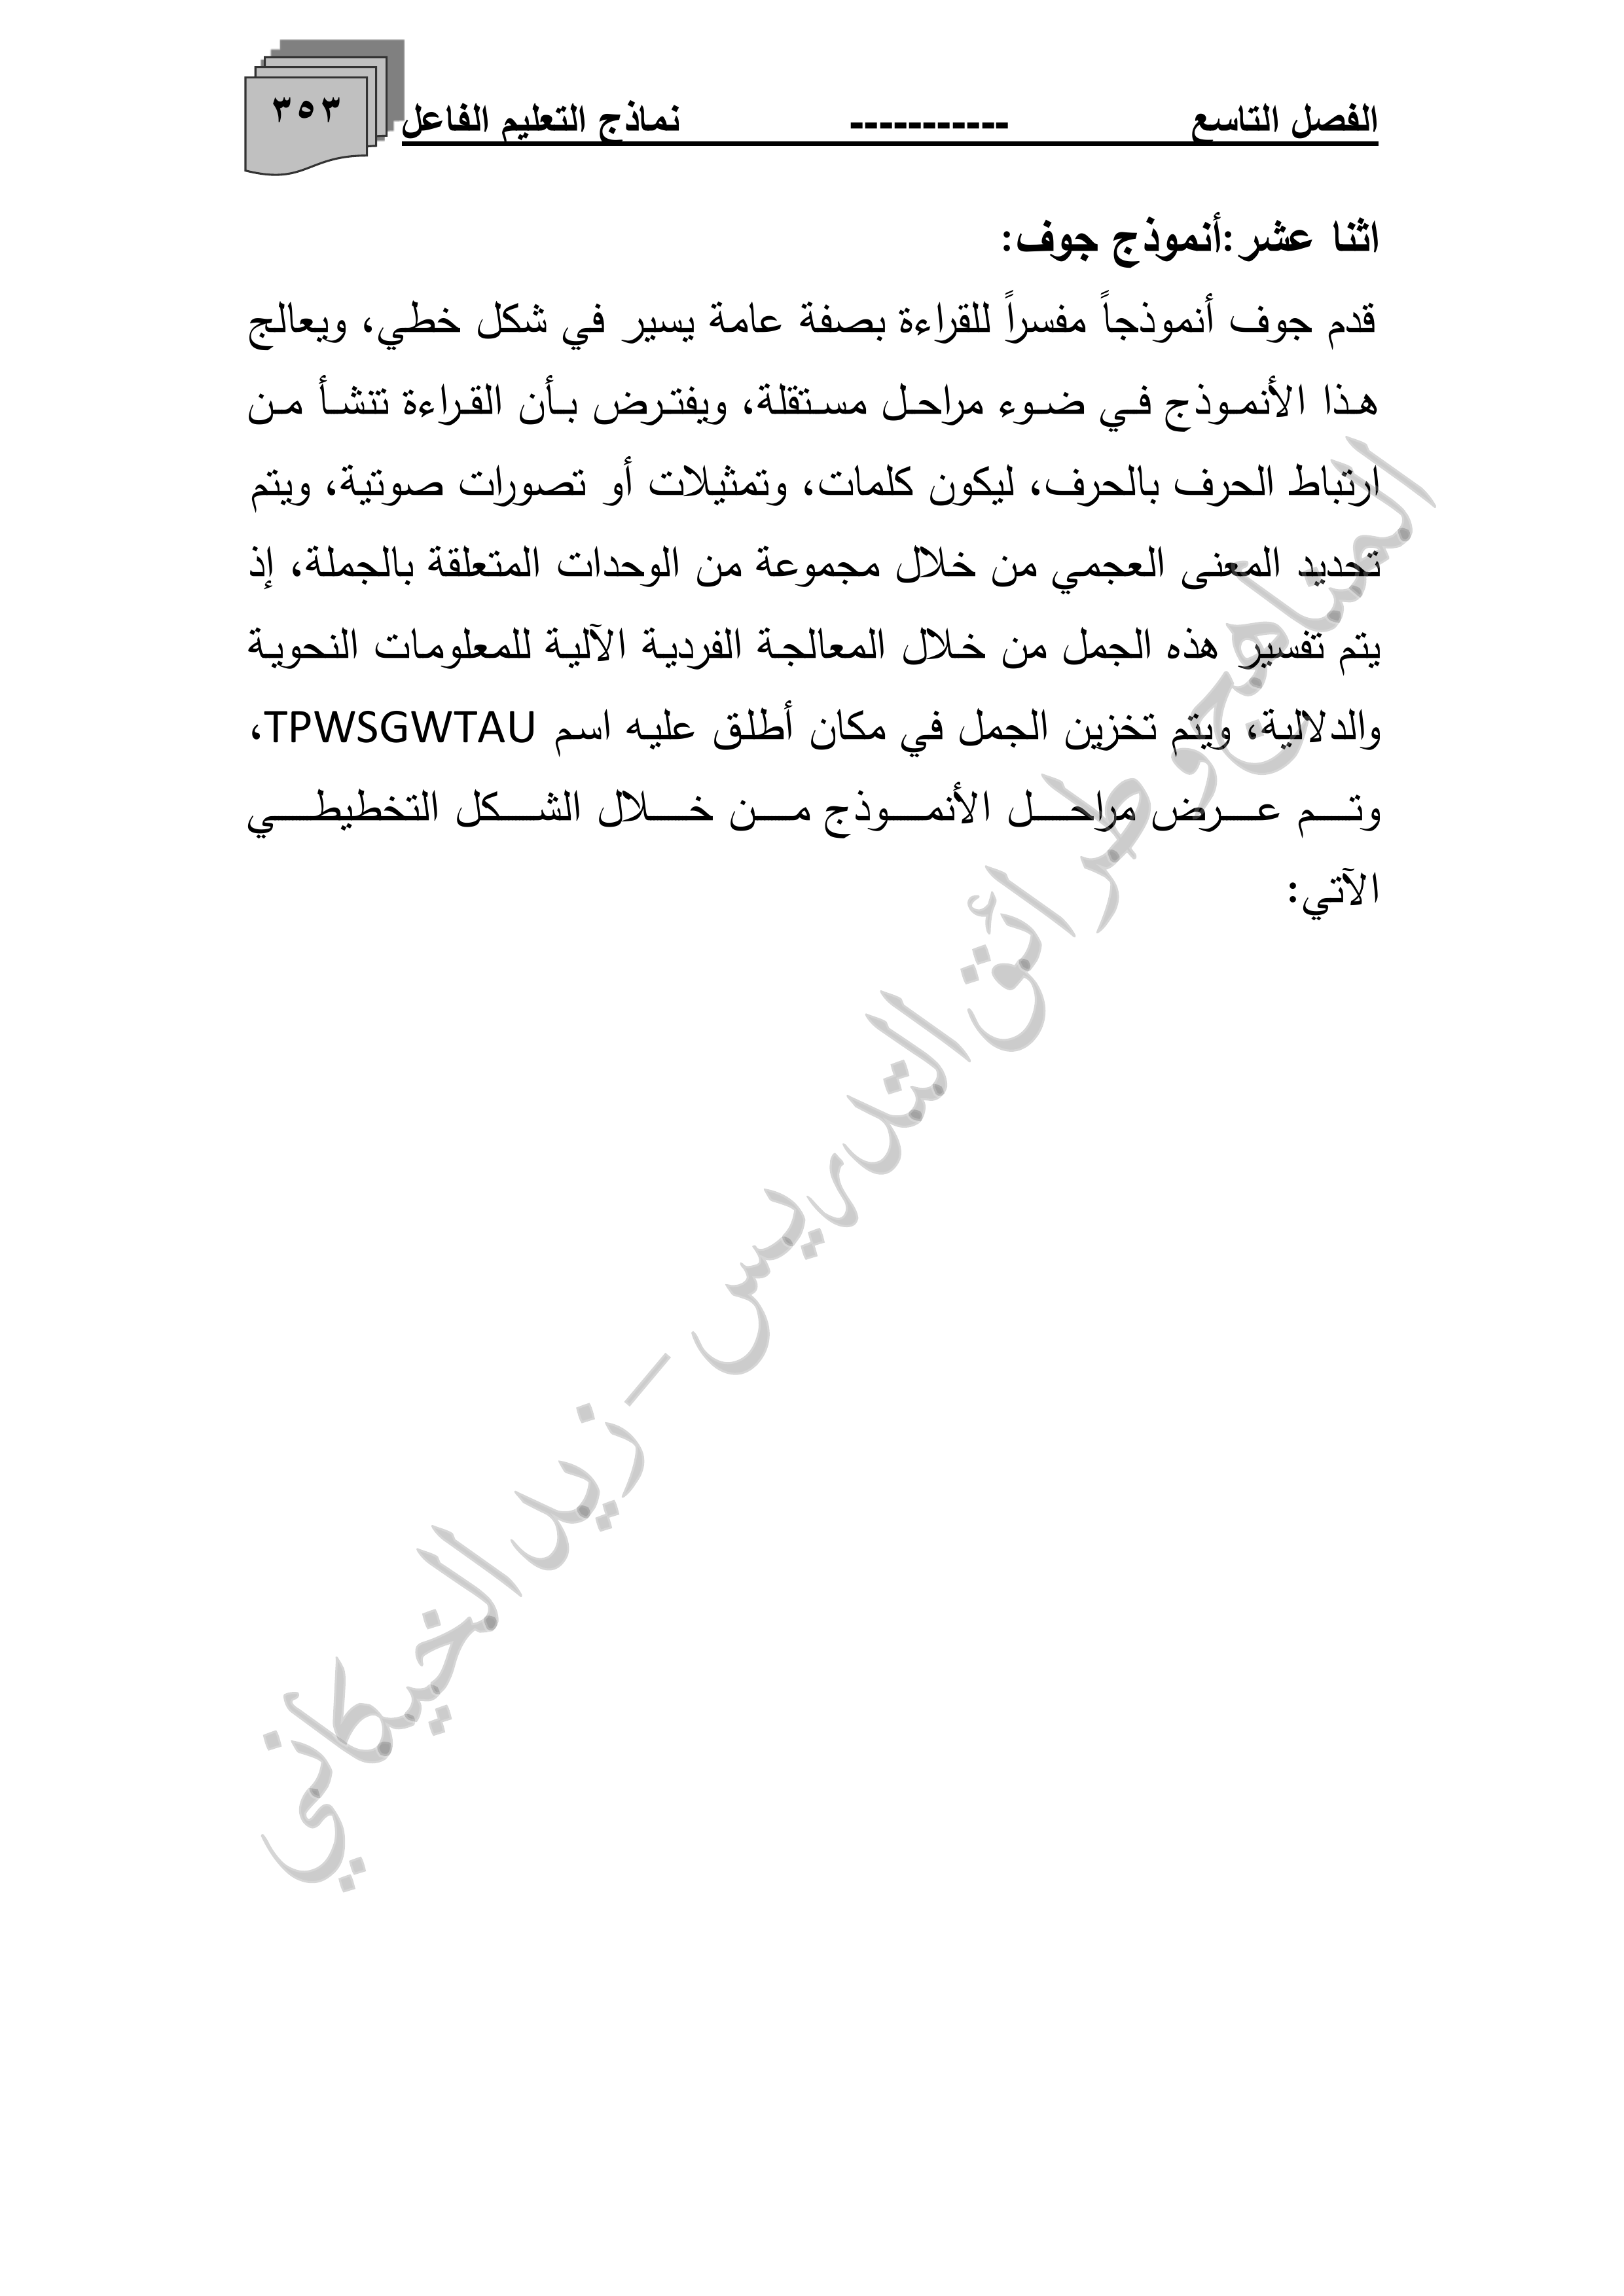 الفصل التاسع ----------- نماذج التعليم الفاعل ٣٥٣
اثنا عشر:أنموذج جوف:
قدم جوف أنموذجاً مفسراً للقراءة بصفة عامة يسير في شكل خطي، ويعالج
هذا الأنموذج في ضوء مراحل مستقلة، ويفترض بأن القراءة تنشأ من
ارتباط الحرف بالحرف، ليكون كلمات، وتمثيلات أو تصورات صوتية، ويتم
تحديد المعنى العجمي من خلال مجموعة من الوحدات المتعلقة بالجملة، إذ
يتم تفسير هذه الجمل من خلال المعالجة الفردية الآلية للمعلومات النحوية
والدلالية، ويتم تخزين الجمل في مكان أطلق عليه اسم TPWSGWTAU،
وتم عرض مراحل الأنموذج من خلال الشكل التخطيطي
الآتي:
المناهج وطرائق التدريس - زيد الخيكاني